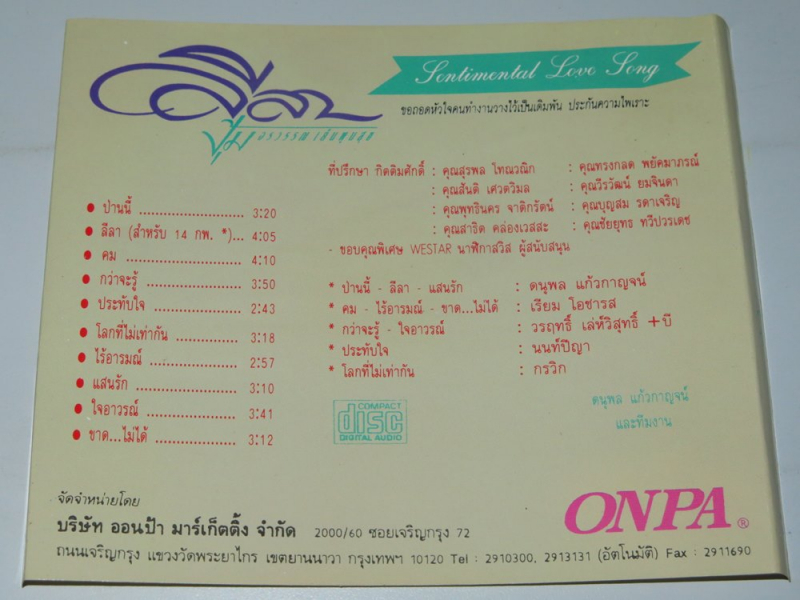 ลีลา
Sentimental Love Song
ปุ้ม อรวรรณ เย็นพูนสุข
ขอถอดหัวใจคนทำงานวางไว้เป็นเดิมพัน ประกันความไพเราะ
ที่ปรึกษา กิตติมศักดิ์ : คุณสุรพล โทณวณิก : คุณทรงกลด พยัคมาภรณ์
: คุณสันติ เศวตวิมล : คุณวีรวัฒน์ ยมจินดา
: คุณพุทธินคร จาติกรัตน์ : คุณบุญสม รดาเจริญ
: คุณสาธิต คล่องเวสสะ : คุณชัยยุทธ ทวีปวรเดช
- ขอบคุณพิเศษ WESTAR นาฬิกาสวิส ผู้สนับสนุน
● ป่านนี้ ........................ 3:20
● ลีลา (สำหรับ 14 กพ. *)... 4:05
● คม ........................ 4:10
● กว่าจะรู้ ........................ 3:50
● ประทับใจ ........................ 2:43
● โลกที่ไม่เท่ากัน ........................ 3:18
● ไร้อารมณ์ ........................ 2:57
● แสนรัก ........................ 3:10
● ใจอาวรณ์ ........................ 3:41
● ขาด...ไม่ได้ ........................ 3:12
* ป่านนี้ - ลีลา - แสนรัก : ดนุพล แก้วกาญจน์
* คม - ไร้อารมณ์ - ขาด...ไม่ได้ : เรียม โอชารส
* กว่าจะรู้ - ใจอาวรณ์ : วรฤทธิ์ เล่ห์วิสุทธิ์ +บี
* ประทับใจ : นนท์ปัญา
* โลกที่ไม่เท่ากัน : กรวิก
COMPACT
disc
DIGITAL AUDIO
ดนุพล แก้วกาญจน์
และทีมงาน
จัดจำหน่ายโดย
บริษัท ออนป้า มาร์เก็ตติ้ง จำกัด 2000/60 ซอยเจริญกรุง 72
ถนนเจริญกรุง แขวงวัดพระยาไกร เขตยานนาวา กรุงเทพฯ 10120 Tel : 2910300, 2913131 (อัตโนมัติ) Fax : 2911690
ONPA®